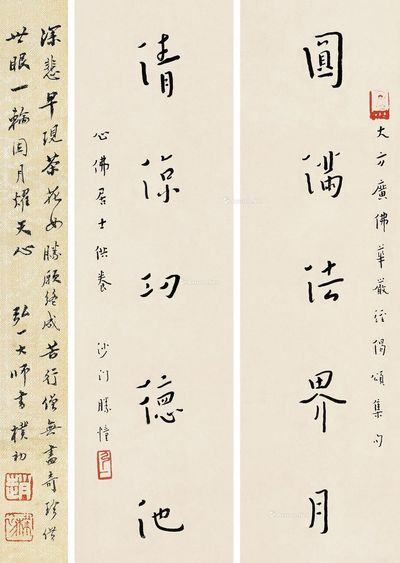 大方廣佛華嚴經偈頌集句
圓滿法界月
清涼功德池
心佛居士供養
沙门勝幢
深悲早現茶花女勝願終成苦行僧無盡奇珍供
世眼一輪圆月耀天心
弘一大师书 樸初